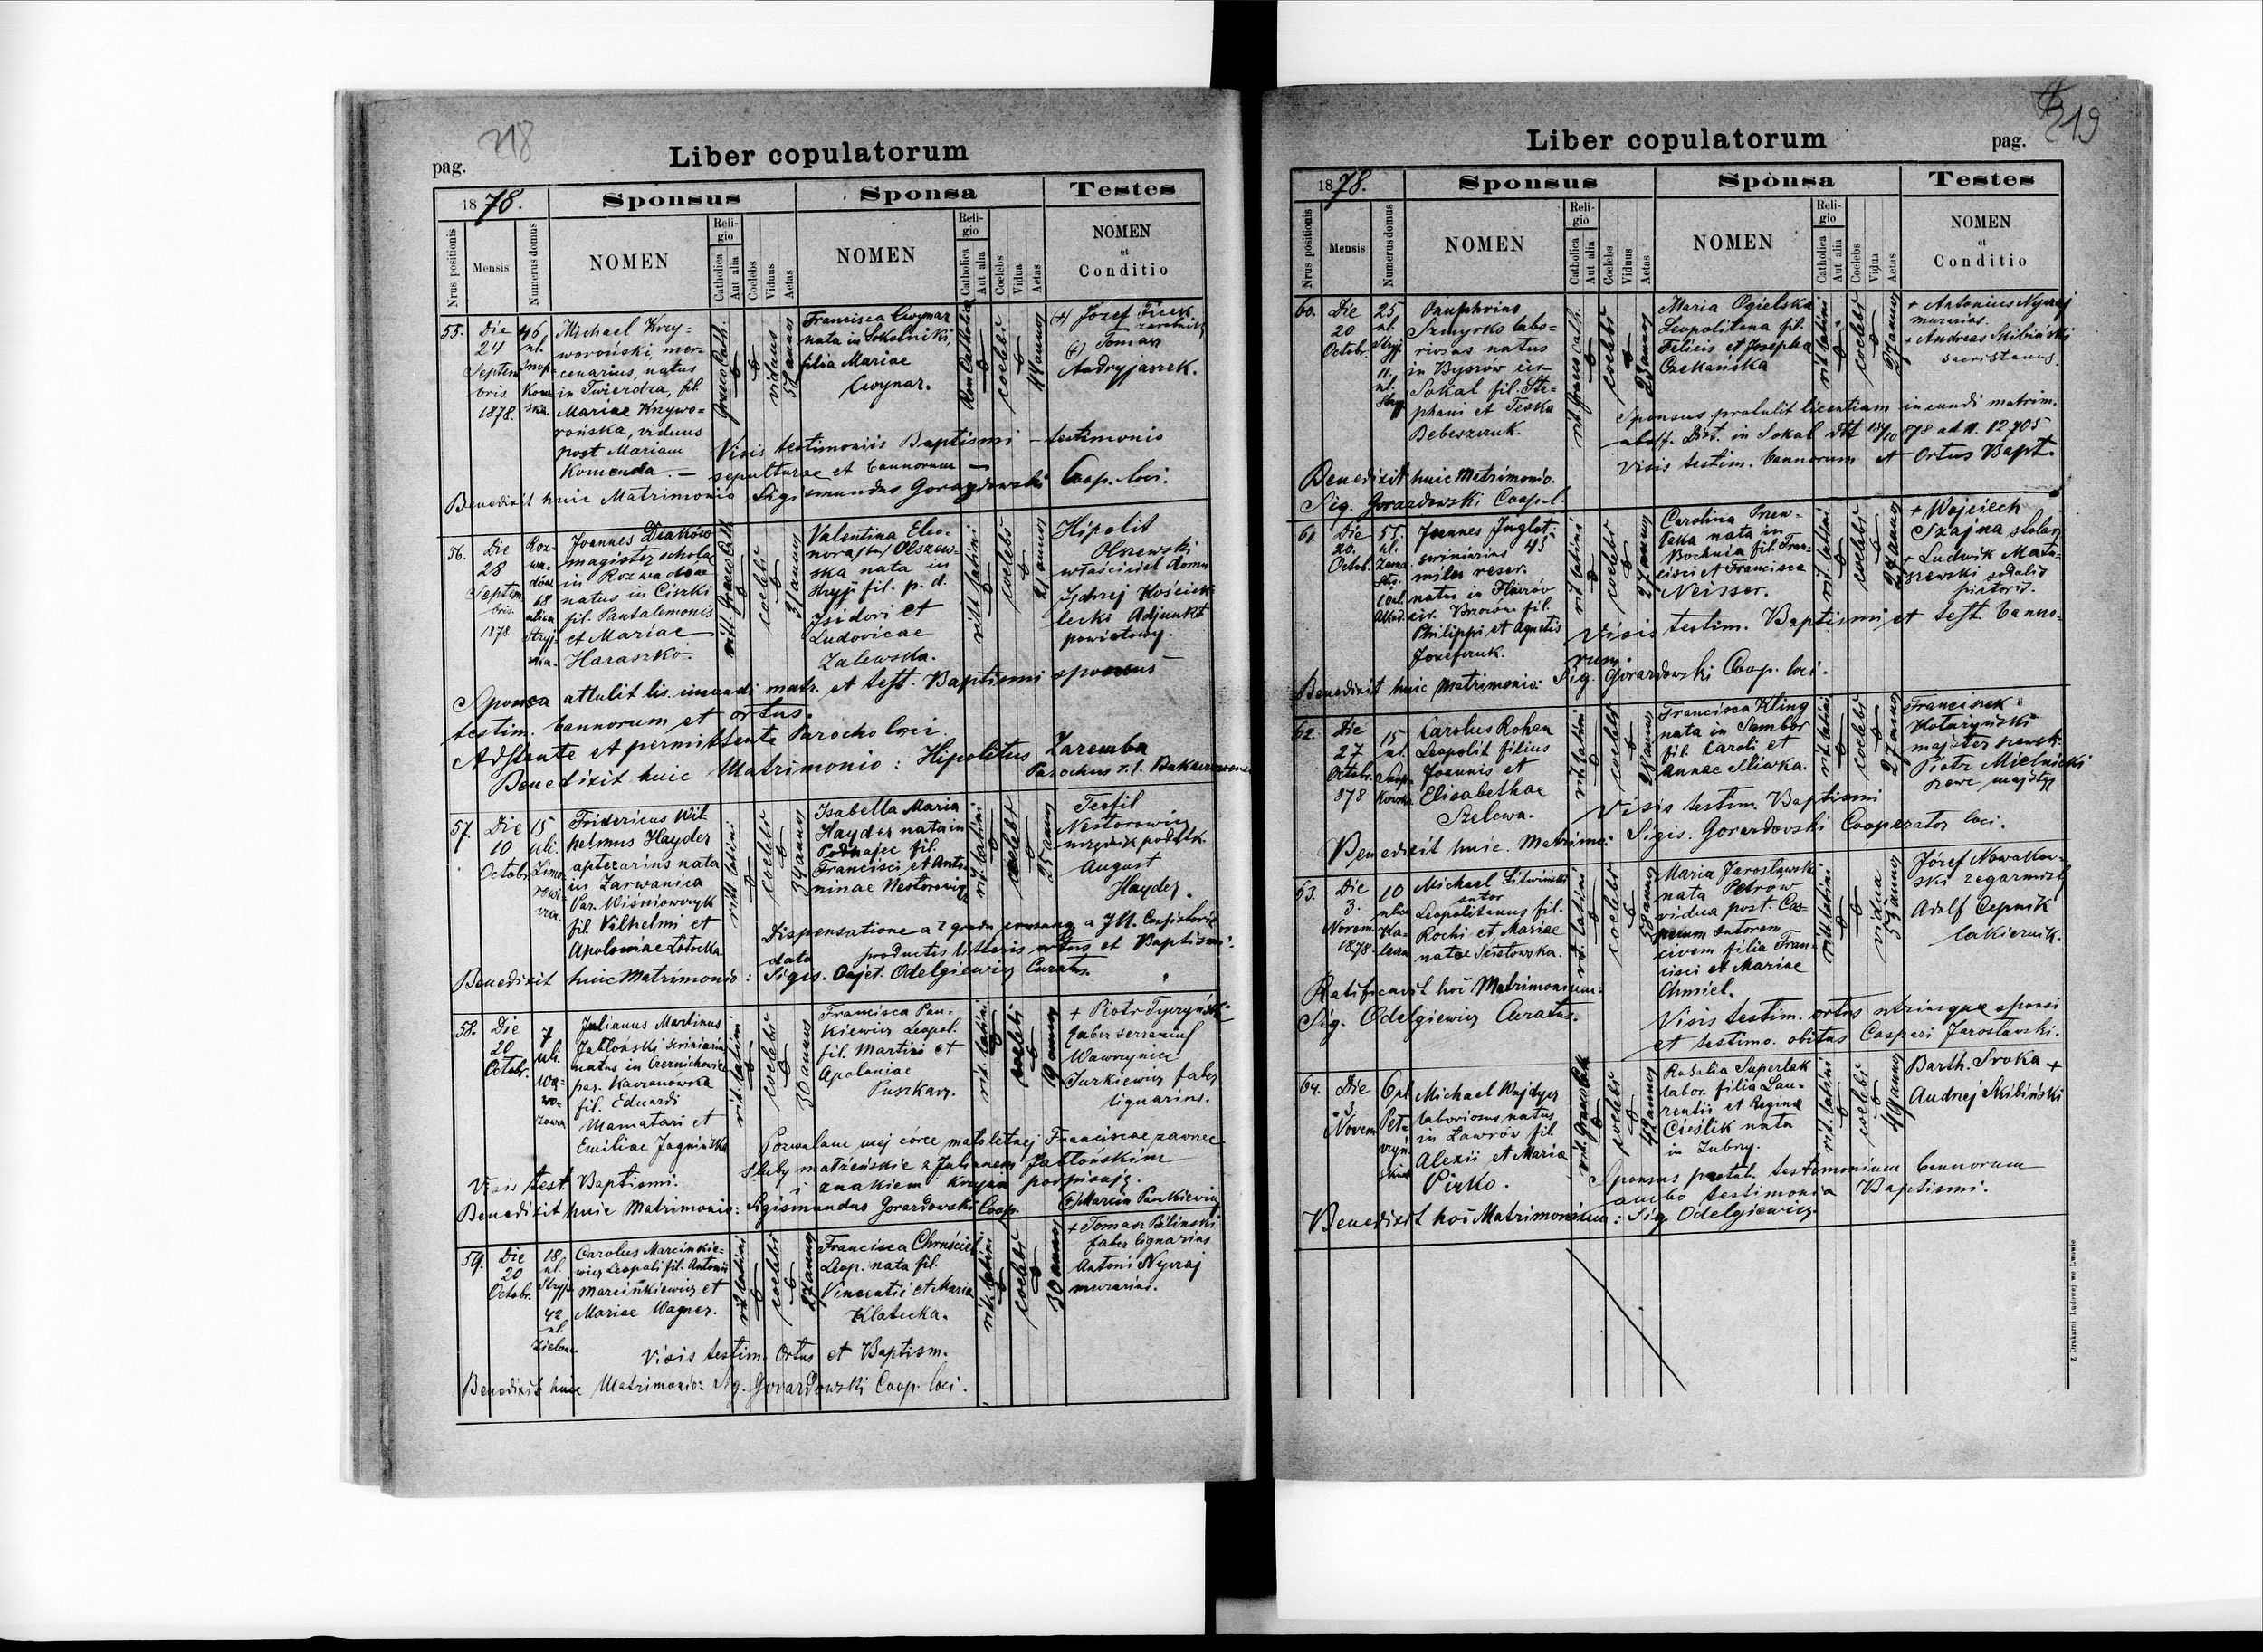 218
pag.
Liber copulatorum
1878.
Sponsus
Sponsa
Testes
Nrus positionis
Mensis
Numerus domus
NOMEN
Religio
Catholica
Aut alia
Coelebs
Viduus
Aetas
NOMEN
Religio
Catholica
Aut alia
Coelebs
Vidua
Aetas
NOMEN
et
Conditio
55.
Die
24
Septem
bris
1878.
46,
ul.
Snop-
Kow
ska.
Michael Krzy-
woroński, mer-
cenarius, natus
in Twierdza, fil.
Mariae Krzywo-
rońska, viduus
post Mariam
Komenda. —
graeco Cath.
viduus
Francisca Cwynar
nata in Sokolniki,
filia Mariae
Cwynar.
Rom Catholica
coelebs
44 annor
(+) Józef Ficek
zarobnik
(+) Tomasz
Andryjaszek.
Visis testimoniis Baptismi – testimonio
sepulturae et bannorum —
Benedixit huic Matrimonio Sigismundus Gorazdowski Coop. loci.
56.
Die
28
Septem
bris.
1878.
Roz-
wa-
dów
68
ulica
Stryj-
ska.
Joannes Diaków
magister schola
in Rozwadów
natus in Ciszki
fil. Pantalemonis
et Mariae
Haraszko.
ritt. graeco Cath
coelebs
31 annor
Valentina Eleo-
nora Olszew-
ska nata in
Stryji fil. p. d.
Isidori et
Ludovicae
Zalewska.
ritt. latini
coelebs
21 annor
Hipolit
Olszewski
właściciel domu
Jędrzej Kościek-
lecki Adjunkt
powiatowy.
Sponsa attulit lis. ineundi matr. et test. Baptismi sponsus
testim. bannorum et ortus.
Adstante et permittente Parocho loci.
Benedixit huic Matrimonio: Hipolitus Zaremba
Parochus r. l.
57.
Die
10
Octobr.
15
uli.
Zimo-
rowi-
cza.
Fridericus Wil-
helmus Hayder
aptecarius nata
in Zarwanica
Par. Wiśniowczyk
fil. Vilhelmi et
Apoloniae
ritt. latini
coelebs
34 annor
Isabella Maria
Hayder nata in
Podhajec fil.
Francisci et Anto
ninae Nestorowicz
rit. latini
coelebs
25 annor
Teofil
Nestorowicz
urzędnik podatk.
August
Hayder.
Dispensatione a 2 gradu consang a JM. Consistorio
data productis litteris ortus et Baptismi.
Benedixit huic Matrimonio: Sigis. Cajet. Odelgiewicz Curatus.
58.
Die
20
Octobr.
7
uli.
Wą-
wo-
zowa
Julianus Martinus
Jabłoński scriniarius
natus in Czernichowce
par.
fil. Eduardi
Mamatari et
Emiliae Jagnińska
rit. latini
coelebs
30 annor
Francisca Pan-
kiewicz Leopol.
fil. Martini et
Apoloniae
Puszkarz.
rit. latini
coelebs
19 annor
+ Piotr Tyczyński
faber serrarius
Wawrzyniec
Jurkiewicz faber
lignarius.
Pozwalam mej córce małoletniej Franciscae zawrzec
śluby małżeńskie z Julianem Jabłońskim
i znakiem krzyża podpisuję.
Visis test. Baptismi.
(+) Marcin Pankiewicz
Benedixit huic Matrimonio: Sigismundus Gorazdowski Coop.
59.
Die
20
Octobr.
18.
ul.
Stryj.
42
ul.
Zielon.
Carolus Marcinkie-
wicz Leopoli fil. Antonii
Marcinkiewicz et
Mariae Wagner.
rit latini
coelebs
27 annor
Francisca Chruściel
Leop. nata fil.
Vincentii et Maria
Klatecka.
rit. latini
coelebs
30 annor
+ Tomasz Biliński
faber lignarius
Antoni Nycraj
murarius.
Visis testim. Ortus et Baptism.
Benedixit huic Matrimonio: Sig. Gorazdowski Coop. loci.
219
Liber copulatorum
pag.
1878.
Sponsus
Sponsa
Testes
Nrus positionis
Mensis
Numerus domus
NOMEN
Religio
Catholica
Aut alia
Coelebs
Viduus
Aetas
NOMEN
Religio
Catholica
Aut alia
Coelebs
Vidua
Aetas
NOMEN
et
Conditio
60.
Die
20
Octobr.
25
ul.
Stryj.
11.
ul.
Stryj.
Onuphrius
Szmyrko labo-
riosus natus
in Byszow cir-
Sokal fil. Ste-
phani et Teska
Bebeszczuk.
rit graeco cath.
coelebs
23 annor
Maria Ogielska
Leopolitana fil.
Felicis et Josepha
Czekańska
rit latini
coelebs
27 annor
+ Antonius Nycraj
murarius.
+ Andreas Skibiński
sacristanus
Sponsus protulit licentiam ineundi matrim.
ab off. Dist. in Sokal dtt 18/10 878 ad N. 12705
Visis testim. bannorum et Ortus Bapt.
Benedixit huic Matrimonio.
Sig. Gorazdowski Coop. l.
61.
Die
20.
Octob.
55.
ul.
10 ul.
Joannes Inglot.
scriniarius 45
miles reser.
natus in
cir. Brzozów fil.
Philippi et Agnetis
Józefczuk.
rit latini
coelebs
27 annor
Carolina
nata in
Bochnia fil. Fran-
cisci et Francisca
Neisser.
rit. latini
coelebs
24 annor
+ Wojciech
Szajna stolarz
+ Ludwik Matu-
szewski sodalis
pistoris.
Visis testim. Baptismi et test. banno-
rum
Benedixit huic Matrimonio: Sig. Gorazdowski Coop. loci.
62.
Die
27
Octobr.
878
15
ul.
Snop-
kowska
Carolus Rohan
Leopolit filius
Joannis et
Elisabethae
Szelewa.
rit latini
coelebs
28 annor
Francisca Kling
nata in Sambor
fil. Caroli et
Annae Sliwka.
rit. latini
coelebs
27 annor
Franciszek
majster szewsk.
Piotr Mielnicki
szewc majster
Visis testim. Baptismi
Benedixit huic. Matrimo: Sigis. Gorazdowski Cooperator loci.
63.
Die
3.
Novem
1878.
10
ulica
Michael Litwiński
sutor
Leopolitanus fil.
Rochi et Mariae
natae
rit. latini
coelebs
58 annor
Maria Jaroslawska
nata Petrow
vidua post. Cas-
perum sutorem
civem filia Fran-
cisci et Mariae
Chmiel.
ritt. latini
vidua
53 annor
Józef Nowakow-
ski zegarmistrz
Adolf Cepnik
lakiernik.
Ratificavit hoc Matrimonium:
Sig. Odelgiewicz Curatus.
Visis testim. ortus utriusque sponsi
et testimo. obitus Caspari Jaroslavski.
64.
Die
3.
Novem
6 ul.
Michael Wajdycz
laboriosus, natus
in Lawrów fil.
Alexii et Maria
Pirko.
coelebs
42 annor
Rosalia Superlak
labor. filia Lau-
rentii et Regina
Cieślik nata
in Zubrzy.
rit. latini
coelebs
40 annor
Barth. Sroka +
Andrzej Skibiński
Sponsus protul. testimonium bannorum
ambo testimonia Baptismi.
Benedixit hoc Matrimonium: Sig. Odelgiewicz.
Z Drukarni Ludowej we Lwowie